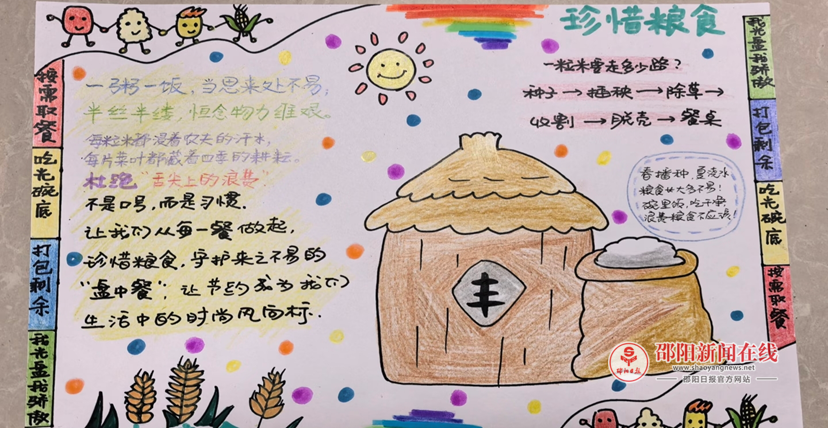 珍惜粮食
按需取餐
吃光碗底
打包剩余
我光盘我骄傲
一粥一饭,当思来处不易;
半丝半缕,恒念物力维艰。
每粒米都浸着农夫的汗水,
每片菜叶都藏着四季的耕耘。
杜绝“舌尖上的浪费”
不是口号,而是习惯.
让我们从每一餐做起,
珍惜粮食,守护来之不易的
“盘中餐”,让节约成为我们
生活中的时尚风向标.
一粒米要走多少路?
种子→插秧→除草→
收割→脱壳→餐桌
春播种,夏浇水
粮食
不易!
碗里饭,吃干净
浪费粮食不应该!
丰
我光盘我骄傲
打包剩余
吃光碗底
按需取餐
邵阳日报
邵阳新闻在线
www.shaoyangnews.net
邵阳日报官方网站